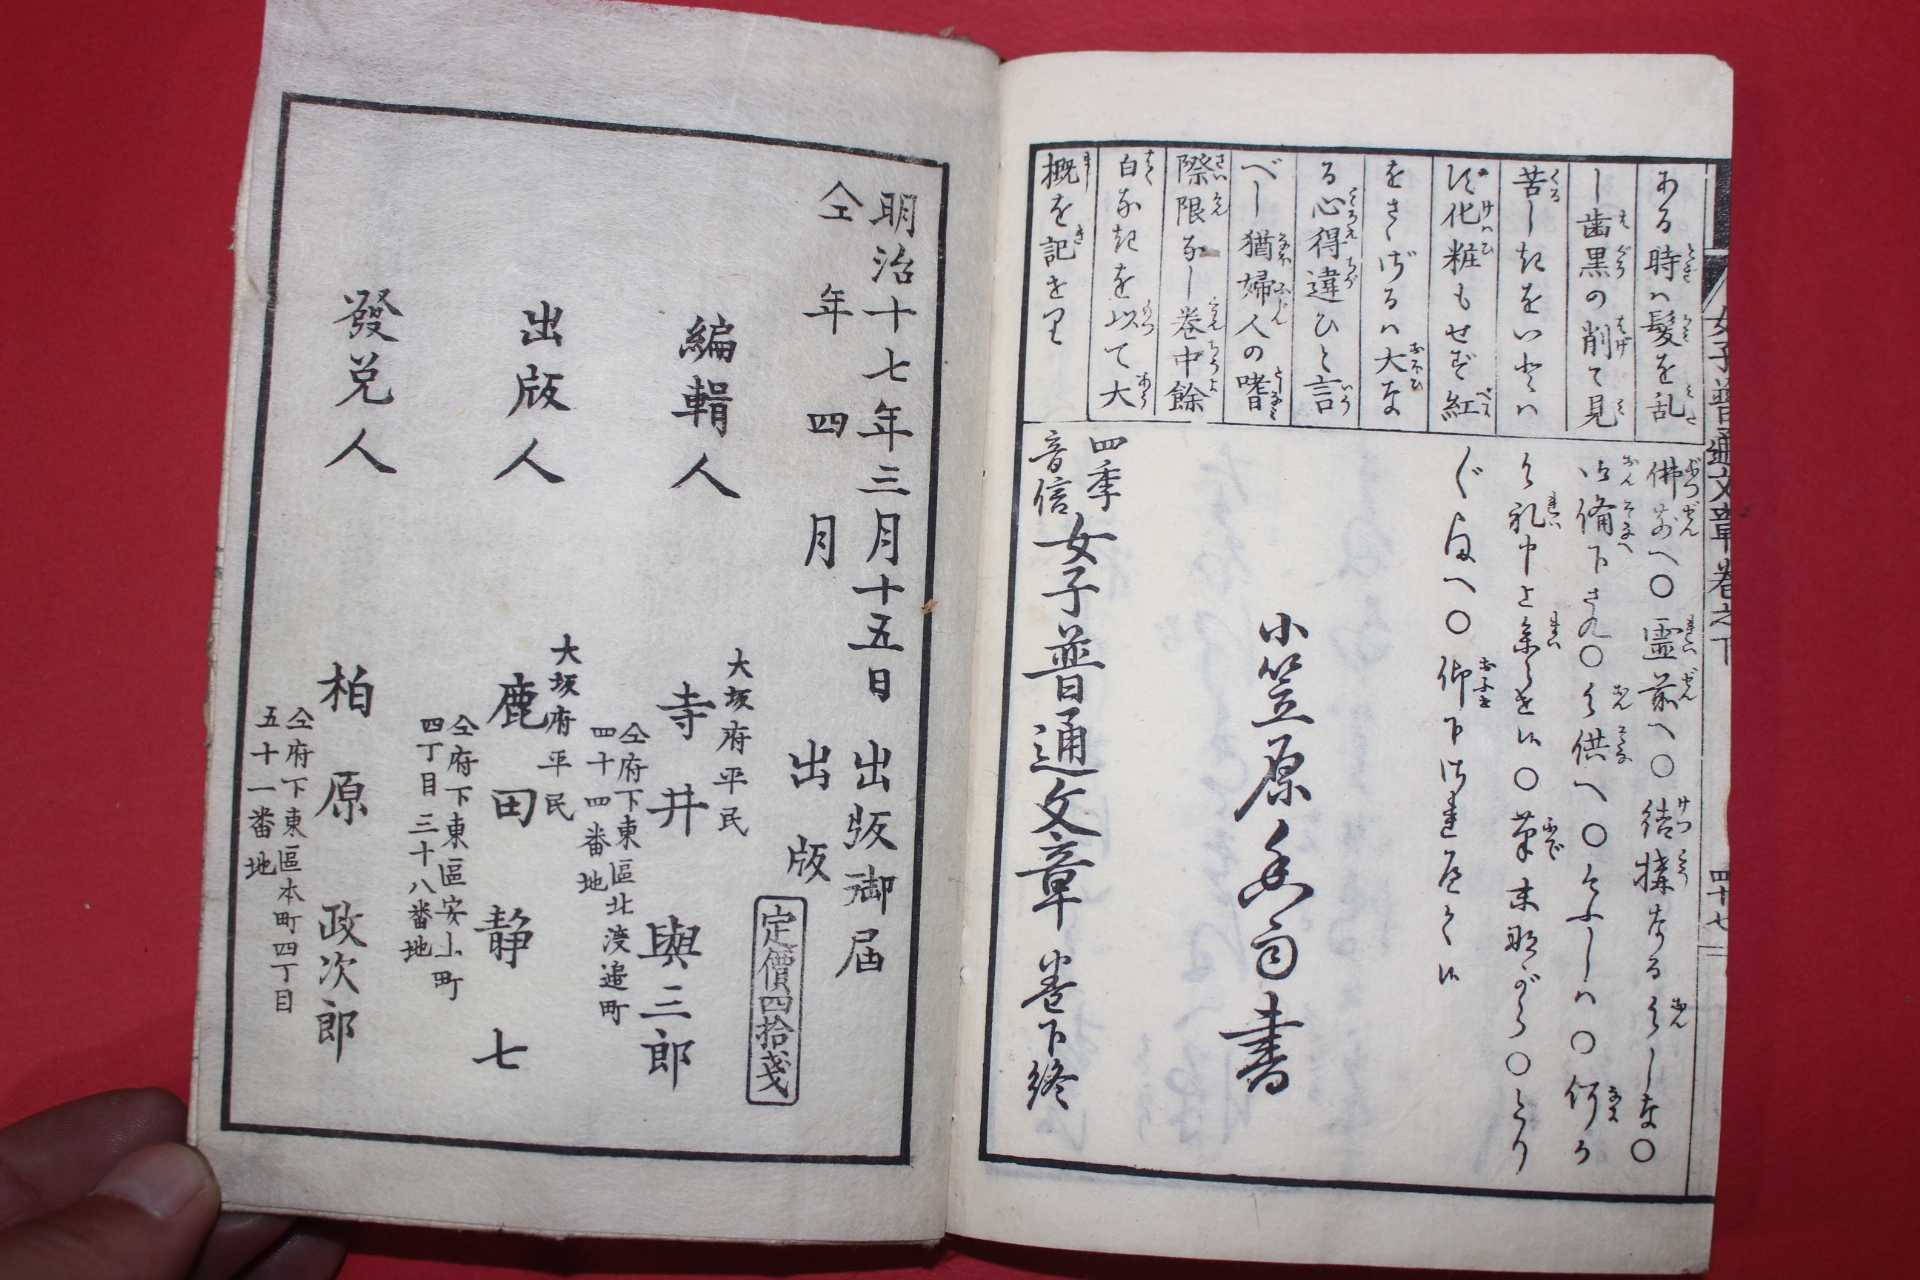 ある時ハ髪を乱
し歯黒の削て見
苦しきをいとハ
ず化粧もせず紅
をさゝざるハ大な
る心得違ひと言
べし猶婦人の嗜
際限なし巻中餘
白なきを以て大
概を記せり
佛前へ〇靈前へ〇結構なる御しな〇
御備下され〇御供へ〇
〇筆末ながら〇
小笠原
書
四季
音信
女子普通文章 巻下終
女子普通文章巻之下
四十七
明治十七年三月十五日 出版御届
仝年四月 出版
定價四拾戔
編輯人
大坂府平民
寺井與三郎
仝府下東區北渡邉町
四十四番地
出版人
大坂府平民
鹿田静七
仝府下東區安土町
四丁目三十八番地
發兌人
柏原政次郎
仝府下東區本町四丁目
五十一番地